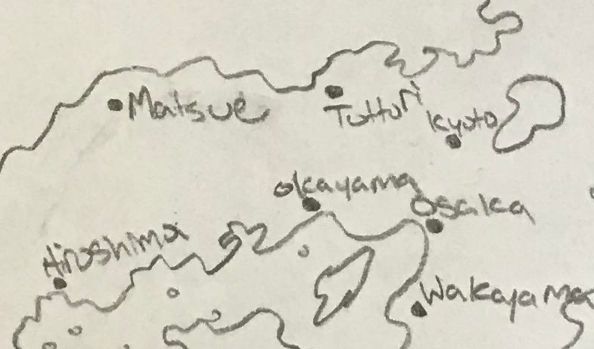 Matsue
Tuttori
Kyoto
Okayama
Osaka
Hiroshima
Wakayama